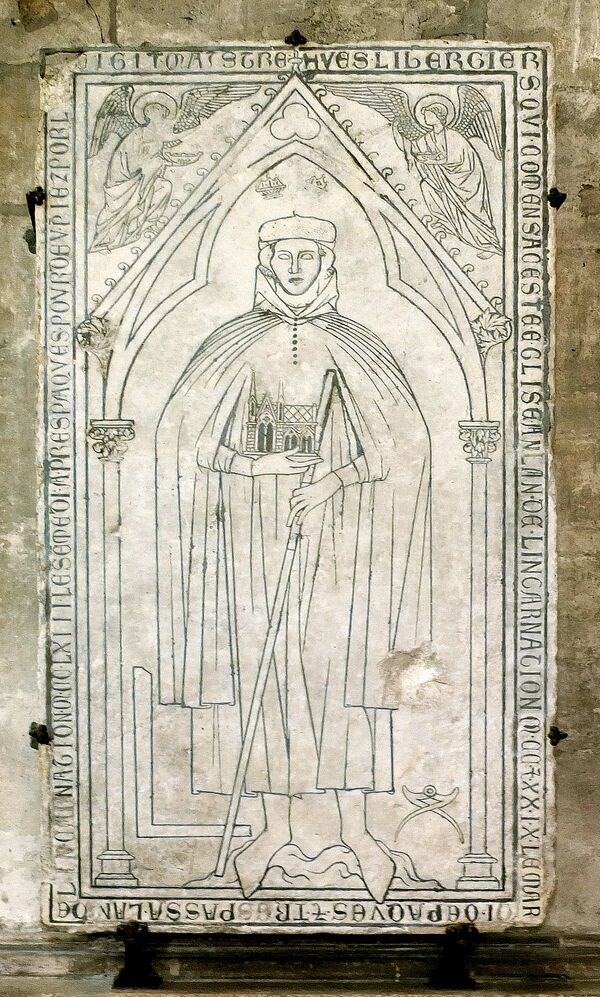 IGIT MAISTRE + HVES LIBERGIER
S QVI COMENSA CESTE EGLISE AN LAN · DE · LINCARNATION M · CC · 7 XXIX LE MAR
DI · DE PAQVES · 7 TRESPASSA LAN DE
LINCARNATION · M · CC · LXIII LE SEMEDI · APRES PAQVES POVR DEV PIEZ POR L